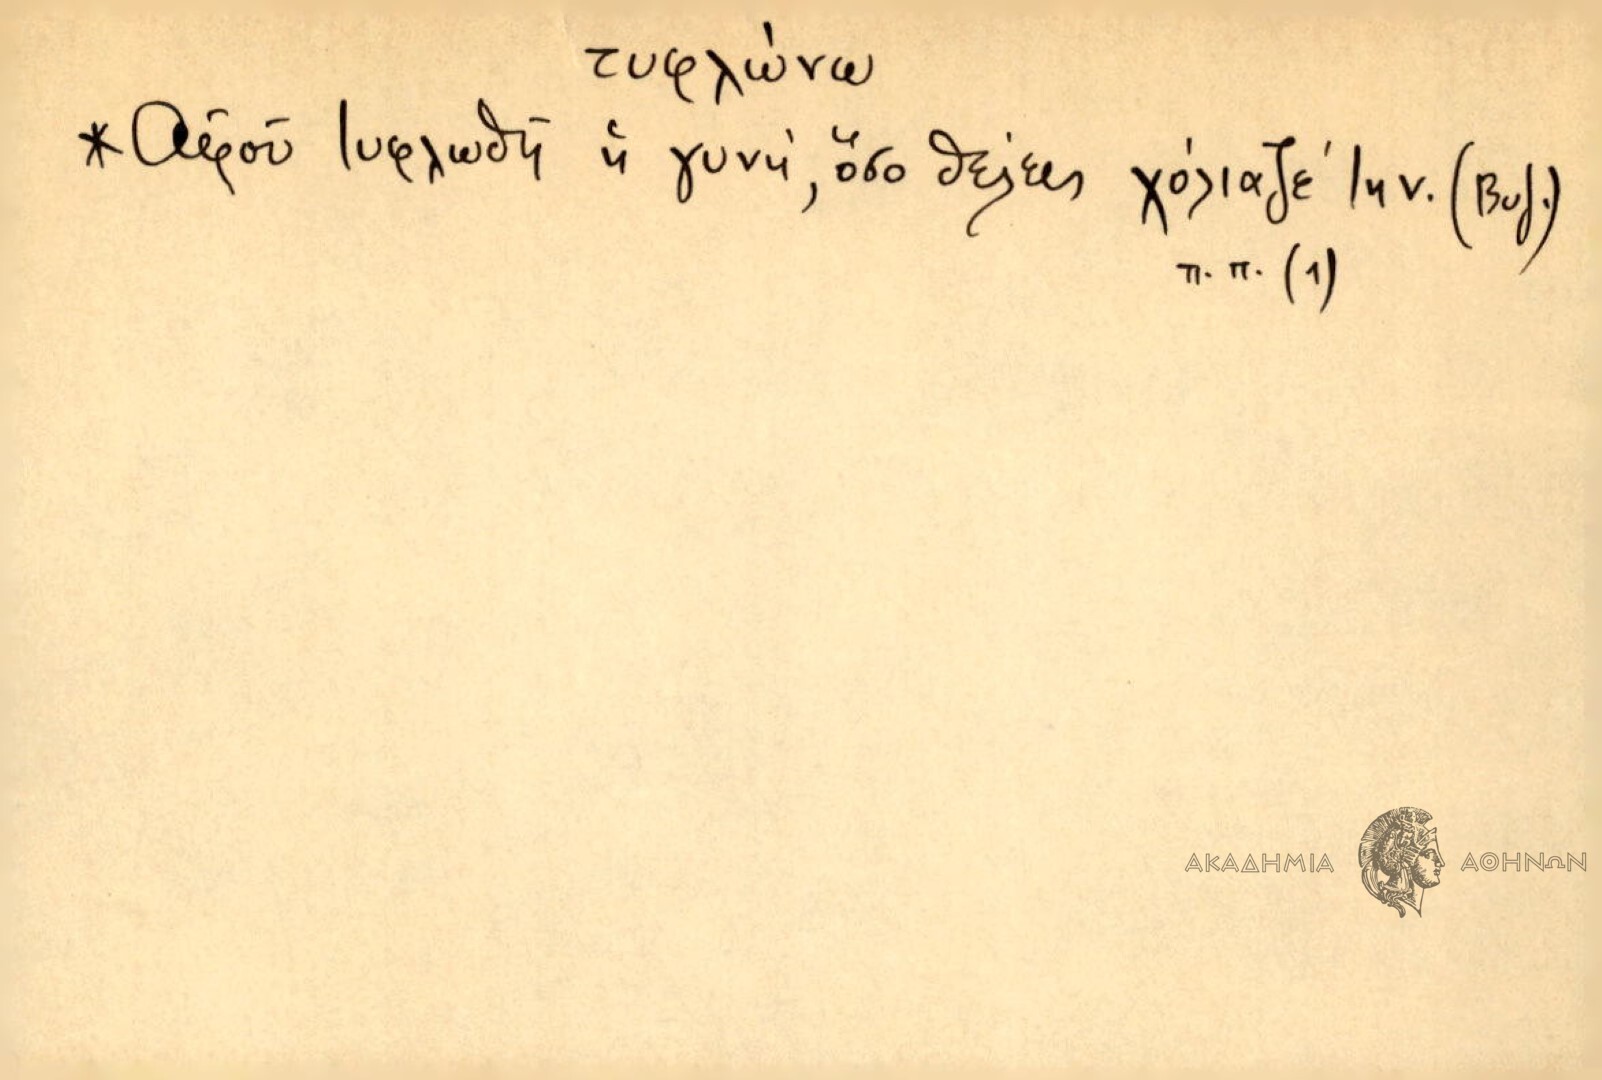 τυφλώνω
* Ἀφοῦ τυφλωθῇ ἡ γυνή, ὅσο θέλεις χόλιαζέ την. (Βυζ.)
π. π. (1)
ΑΚΑΔΗΜΙΑ ΑΘΗΝΩΝ